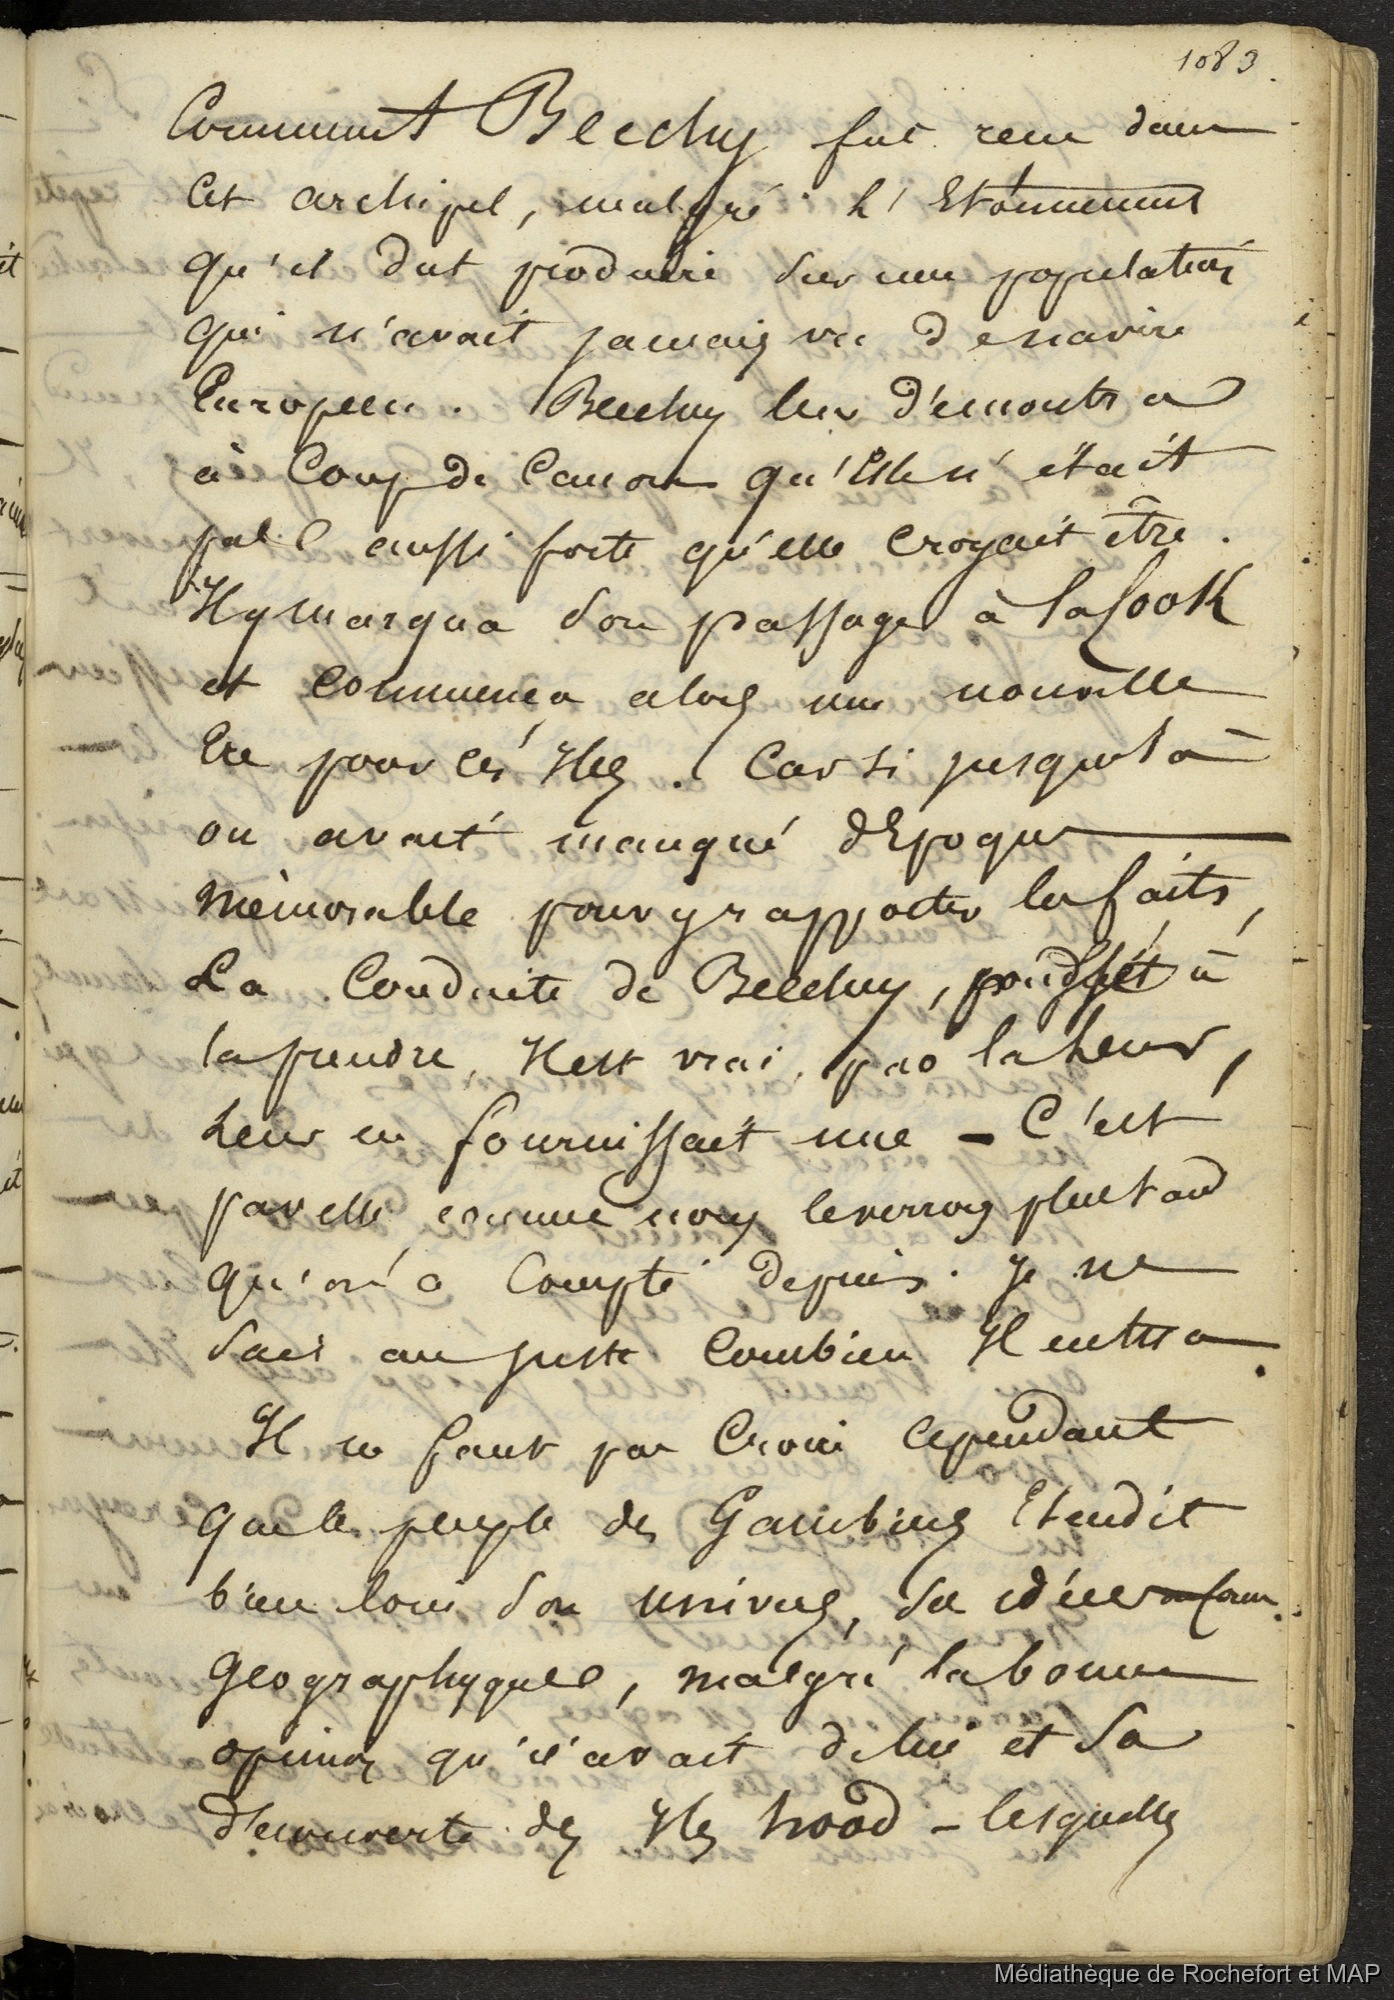 1083.
Comment Beechy fut recu dans
cet archipel, malgré l'Etonnement
qu'il dut produire sur une population
qui n'avait jamais vu de navire
Européen. Beechy leur démontra
à coup de canon qu'Elle n'était
pas aussi forte qu'elle croyait être.
Il y marqua son passage à la Cook
et commença alors une nouvelle
Ere pour ces Iles. Car si jusque là
on avait manqué d'Epoque
mémorable pour y rapporter les faits,
La Conduite de Beechy, poussé à
la prendre, Il est vrai, par la leur,
leur en fournissait une - C'est
par elle comme nous le verrons plus tard
qu'on a compté depuis. Je ne
sais au juste combien Il entra
Il ne faut pas Croire cependant
que le peuple des Gambiers Etendit
bien loin son univers, ses idées
Géographyques, malgré la bonne
opinion qu'il avait de lui et sa
découverte des Iles hood - lesquelles
Médiathèque de Rochefort et MAP